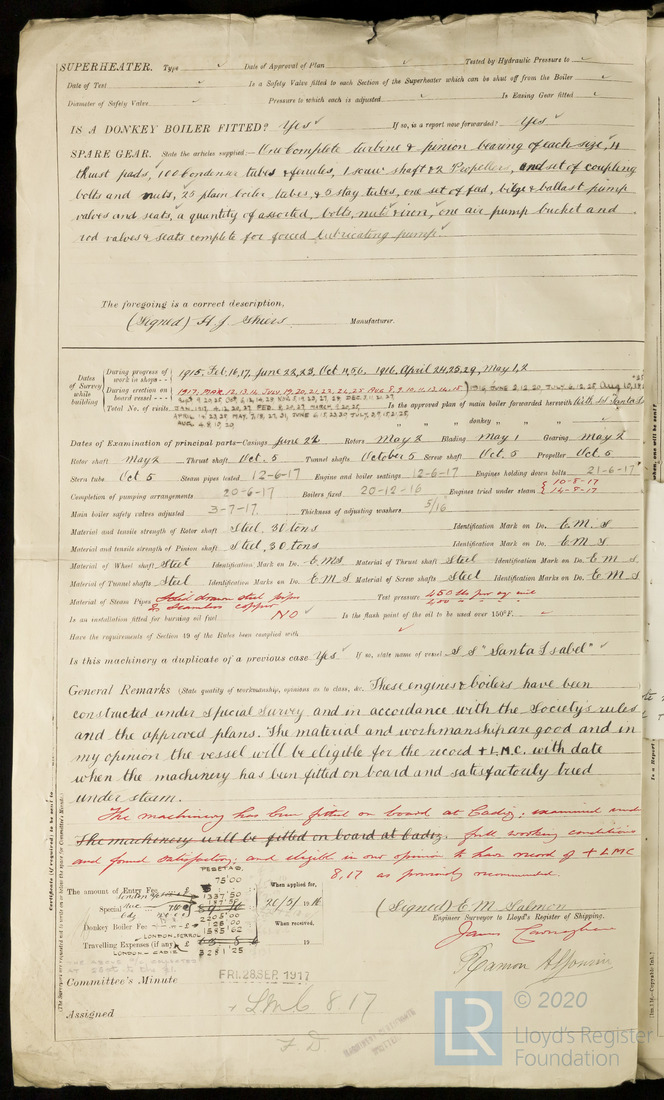 SUPERHEATER. Type ✓ Date of Approval of Plan ✓ Tested by Hydraulic Pressure to ✓
Date of Test ✓ Is a Safety Valve fitted to each Section of the Superheater which can be shut off from the Boiler ✓
Diameter of Safety Valve ✓ Pressure to which each is adjusted ✓ Is Easing Gear fitted ✓
IS A DONKEY BOILER FITTED? Yes ✓ If so, is a report now forwarded? Yes ✓
SPARE GEAR. State the articles supplied:— One complete turbine & pinion bearing of each size, 4
thrust pads, 100 condenser tubes & ferrules, 1 screw shaft & 2 Propellers, and set of coupling
bolts and nuts, 25 plain boiler tubes, & 5 stay tubes, one set of fud, bilge & ballast pump
valves and seats, a quantity of assorted, bolts, nuts & iron, one air pump bucket and
rod valves & seats complete for forced lubricating pump.
The foregoing is a correct description,
(Signed) H J Shiers Manufacturer.
Dates of Survey while building
During progress of work in shops - - 1915. Feb, 16, 17, June 22, 23, Oct 4, 5, 6. 1916. April 24, 25, 29, May 1, 2
During erection on board vessel - - - 1917. MAR. 12, 13, 14
Total No. of visits JAN. 1917. Is the approved plan of main boiler forwarded herewith With SS Santa Isabel
„ „ „ donkey „ „ „
Dates of Examination of principal parts—Casings June 22 Rotors May 2 Blading May 1 Gearing May 2
Rotor shaft May 2 Thrust shaft Oct. 5 Tunnel shafts October 5 Screw shaft Oct. 5 Propeller Oct. 5
Stern tube Oct 5 Steam pipes tested 12-6-17 Engine and boiler seatings 12-6-17 Engines holding down bolts 21-6-17
Completion of pumping arrangements 20-6-17 Boilers fixed 20-12-16 Engines tried under steam { 10-8-17 14-8-17
Main boiler safety valves adjusted 3-7-17 Thickness of adjusting washers 5/16
Material and tensile strength of Rotor shaft Steel, 30 tons Identification Mark on Do. E.M.S
Material and tensile strength of Pinion shaft Steel, 30 tons Identification Mark on Do. E.M.S
Material of Wheel shaft Steel Identification Mark on Do. EMS Material of Thrust shaft Steel Identification Mark on Do. E M S
Material of Tunnel shafts Steel Identification Marks on Do. E M S Material of Screw shafts Steel Identification Marks on Do. E M S
Material of Steam Pipes Solid drawn steel pipes Test pressure 450 lbs per sq inch
& Seamless copper 400 „ „ „
Is an installation fitted for burning oil fuel NO ✓ Is the flash point of the oil to be used over 150°F. —
Have the requirements of Section 49 of the Rules been complied with ✓
Is this machinery a duplicate of a previous case Yes ✓ If so, state name of vessel S S "Santa Isabel" ✓
General Remarks (State quality of workmanship, opinions as to class, &c. These engines & boilers have been
constructed under special survey and in accordance with the Society's rules
and the approved plans. The material and workmanship are good and in
my opinion the vessel will be eligible for the record + L.M.C. with date
when the machinery has been fitted on board and satisfactorily tried
under steam.
The machinery has been fitted on board at Cadiz, examined under
The machinery will be fitted on board at Cadiz. full working conditions
and found satisfactory, and eligible in our opinion to have record of + LMC
8,17 as previously recommended.
PESETAS.
The amount of Entry Fee .. £ 75'00
1337'50
Special
2205'00
Donkey Boiler Fee £
LONDON, FERROL 1585'62
Travelling Expenses (if any) £
LONDON - CADIZ 3281'25
When applied for,
20/5/1916
When received,
19
(Signed) E. M. Salmon
Engineer Surveyor to Lloyd's Register of Shipping.
Committee's Minute FRI. 28 SEP. 1917
Assigned + LMC 8.17
F D
© 2020
LR Lloyd's Register
Foundation
Certificate (if required) to be sent to
(The Surveyors are requested not to write on or below the space for Committee's Minute.)